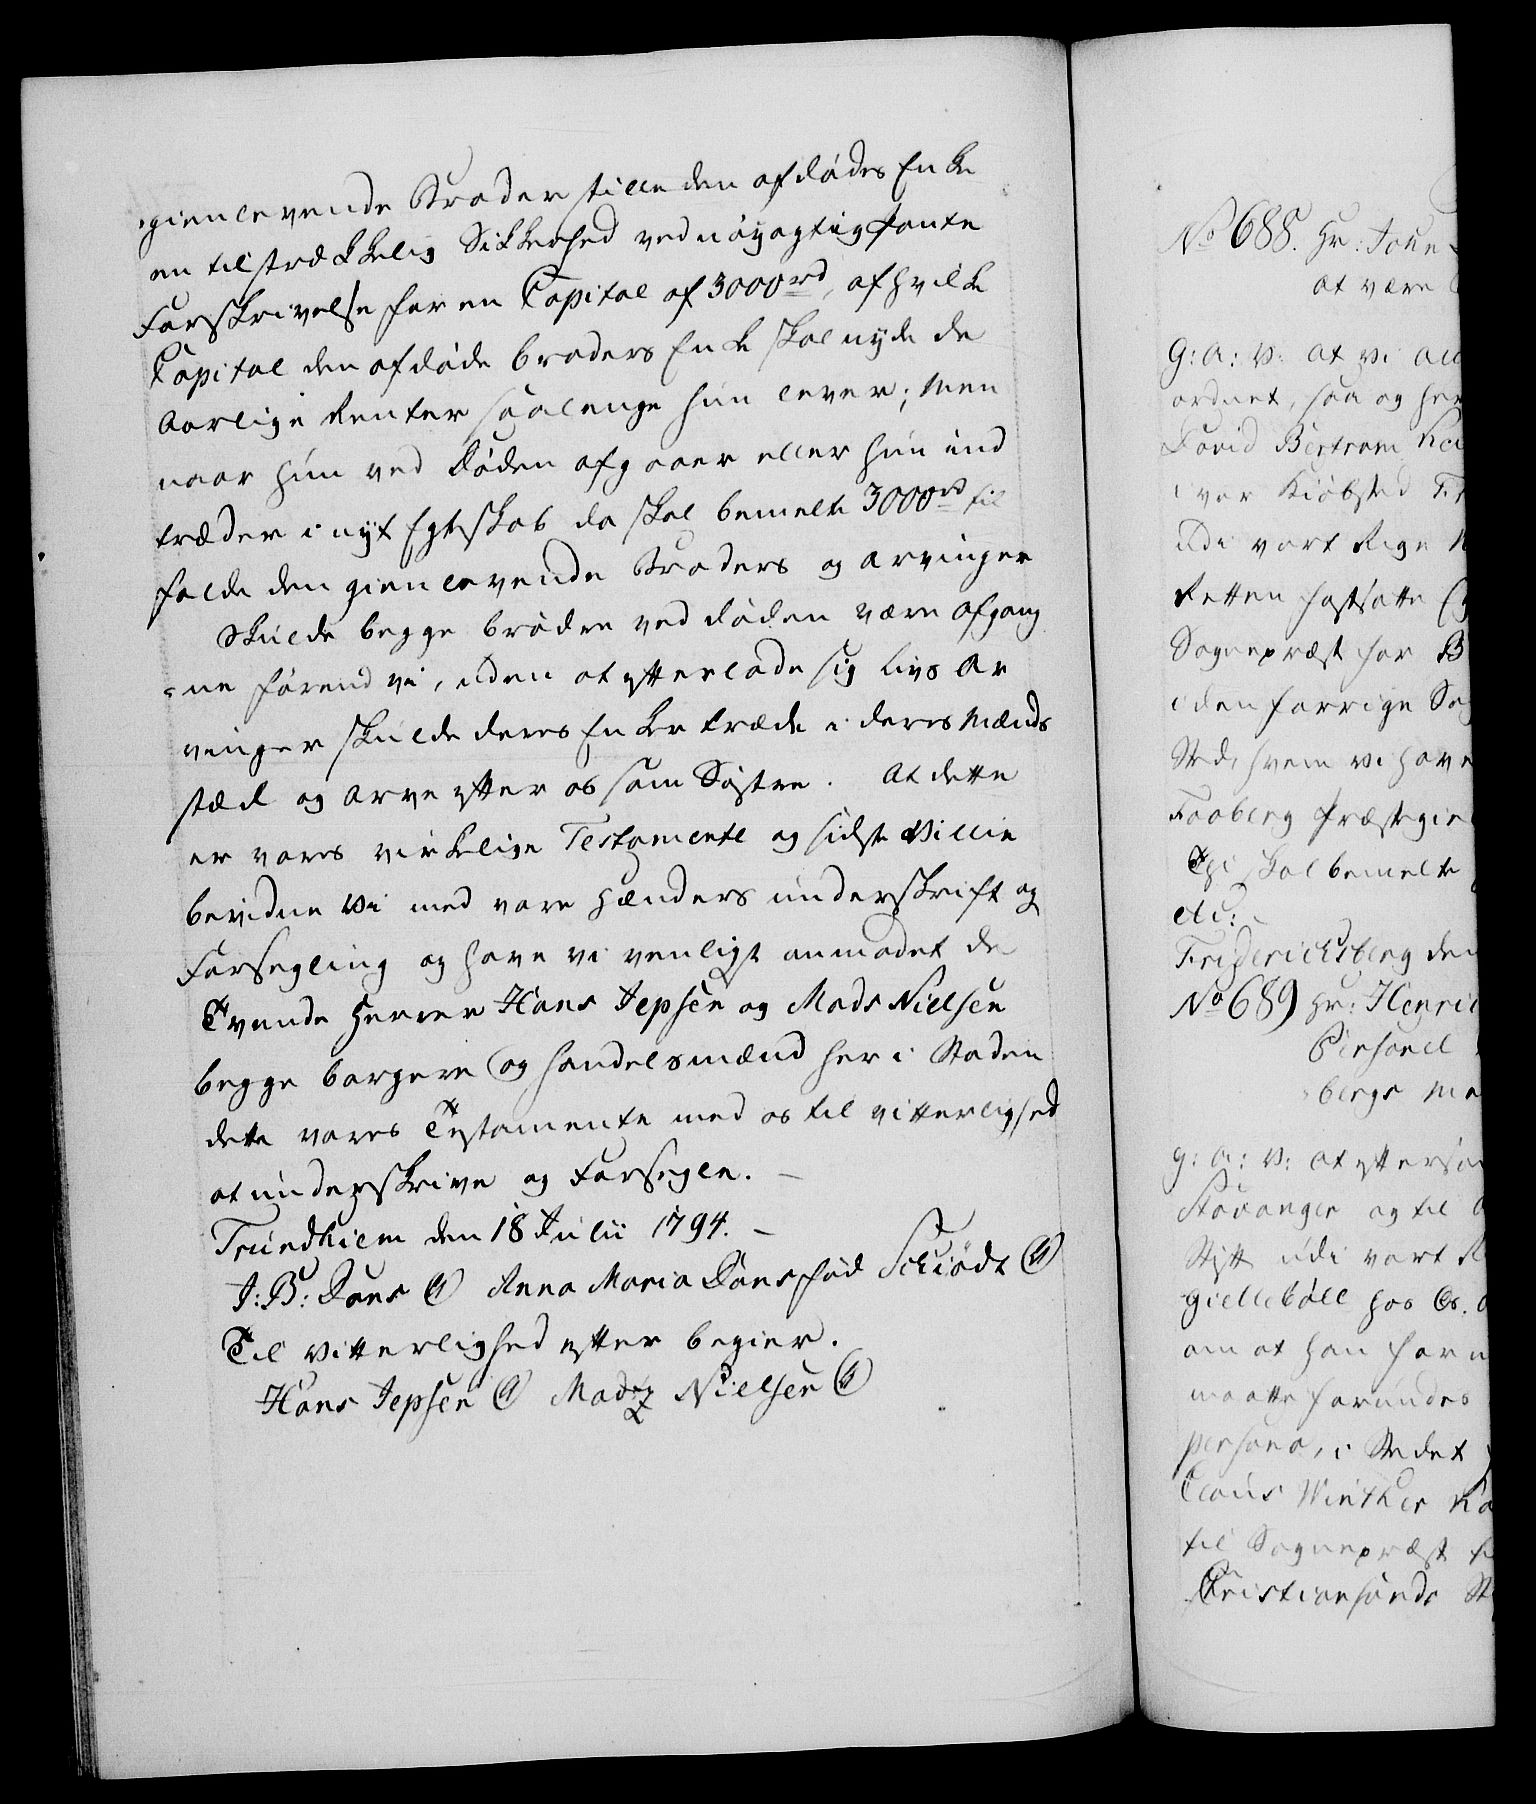 gienlevende Broder stille den afdødes Enke
en tilstrækkelig Sikkerhed ved nøyagtig Pante
Forskrivelse for en Capital af 3000rd, af hvilke
Capital den afdøde broders Enke skal nyde de
Aarlige Renter saalenge hun lever; Men
naar hun ved Døden afgaaer eller hun ind
træder i nyt Egteskab da skal bemelte 3000rd til
falde den gienlevende Broders og Arvinger
Skulde begge brødre ved døden være afgang
=ne førend vi, uden at efterlade sig Livs Ar
vinger skulde deres Enker træde i deres Mænds
stæd og arve efter os som Søstre. At dette
er vores virkelige Testamente og sidste Villie
bevidne Vi med vore Hænders underskrift og
Forsegling og have vi venligst anmodet de
Tvende Herrer Hans Jepsen og Mads Nielsen
begge borgere og Handelsmænd her i Staden
dette vores Testamente med os til vitterlighed
at underskrive og Forsegle.
Trundhiem den 18 Julii 1794.
J: B: Dons Anna Maria Dons fød Schiødt
Til Vitterlighed efter begier.
Hans Jepsen Mads Nielsen
No 688. Hr: John
at være
G: A: V: at vi all
ordnet, saa og her
David Bertram
i vor Kiøbsted
udi vort Rige
Retten fastsatte
Sognepræst for
i den forrige
Sted, hvem vi have
Faaberg Præstegie
Thi skal bemelte
etc:
Friderichsberg den
No 689 Hr: Henric
Personel
bergs
G: A: V: at eftersom
Stavanger og til
Stift udi vort
Giellebøll hos Os.
om at han for
maatte forundes
persona, i Stedet
Claus Winther
til Sognepræst
Christiansands